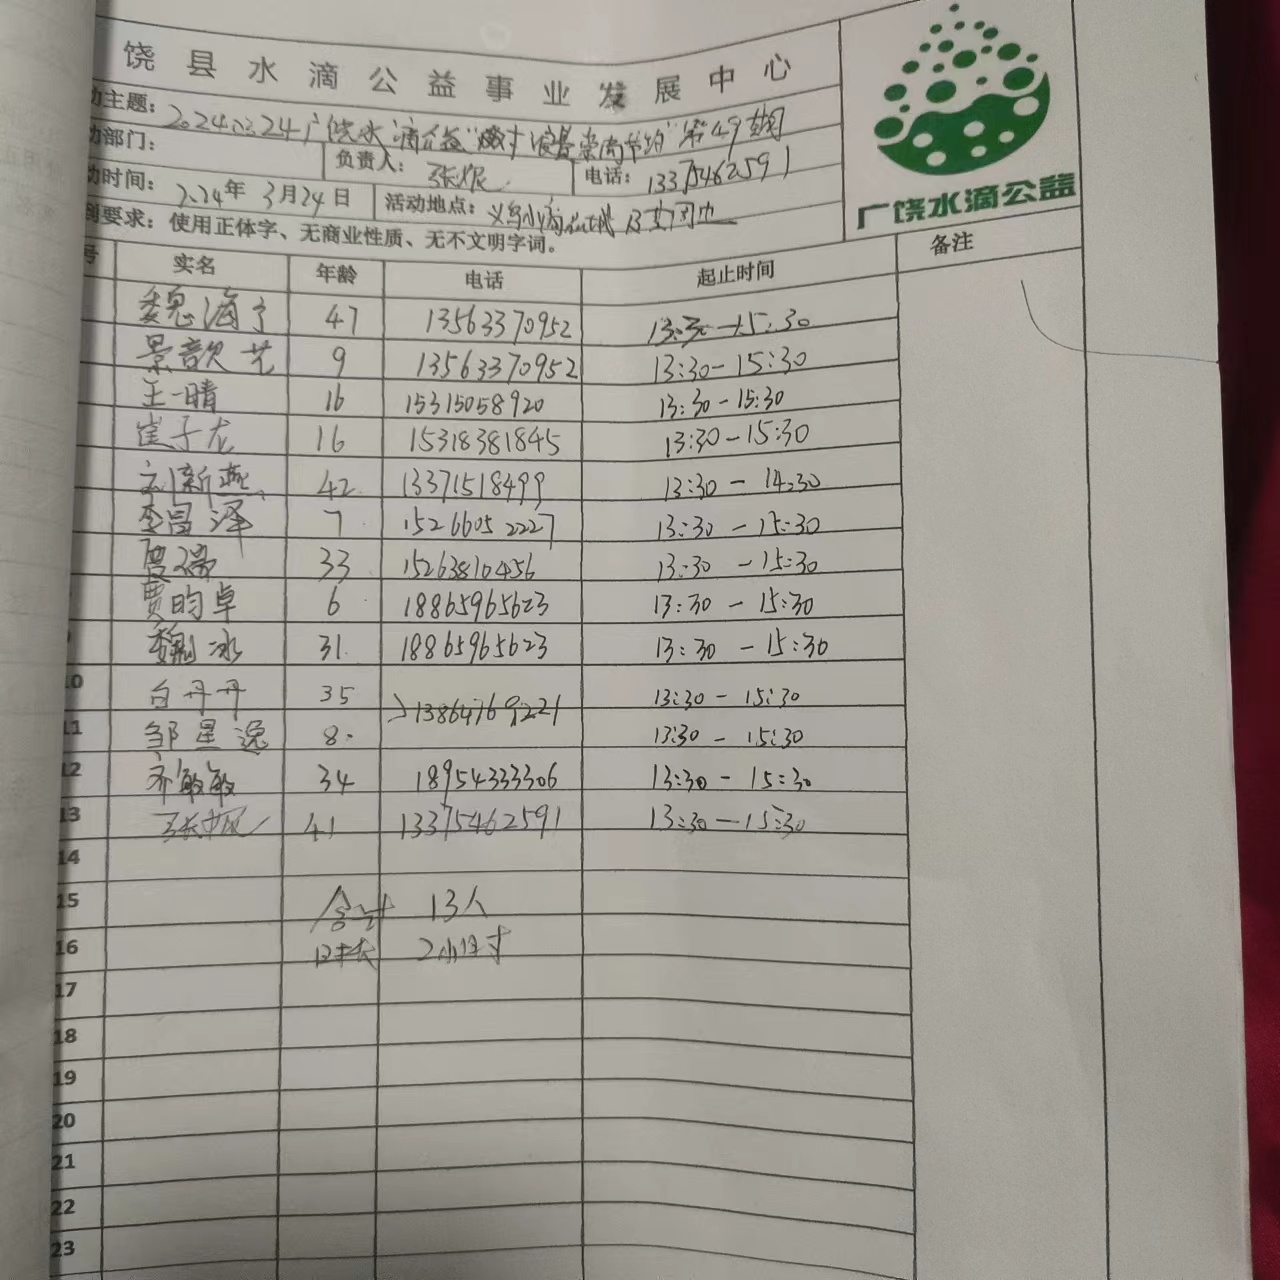 饶县水滴公益事业发展中心
动主题：20240324广饶水滴公益"反对浪费崇尚节约"第49期
动部门： 负责人：张妮 电话：13375462591
动时间：2024年3月24日 活动地点：义乌小商品城及周边
到要求：使用正体字、无商业性质、无不文明字词。
广饶水滴公益
号 实名 年龄 电话 起止时间 备注
魏海宁 47 13563370952 13:30-15:30
景歆艺 9 13563370952 13:30-15:30
王一晴 16 15315058920 13:30-15:30
崔子龙 16 15318381845 13:30-15:30
刘新燕 42 13371518499 13:30-14:30
李昌泽 7 15266052227 13:30-15:30
33 15263810456 13:30-15:30
贾昀卓 6 18865965623 13:30-15:30
魏冰 31 18865965623 13:30-15:30
10 白丹丹 35 13864769221 13:30-15:30
11 邹星逸 8 13:30-15:30
12 齐敏敏 34 18954333306 13:30-15:30
13 张妮 41 13375462591 13:30-15:30
14
15 合计 13人
16 时长 2小时
17
18
19
20
21
22
23